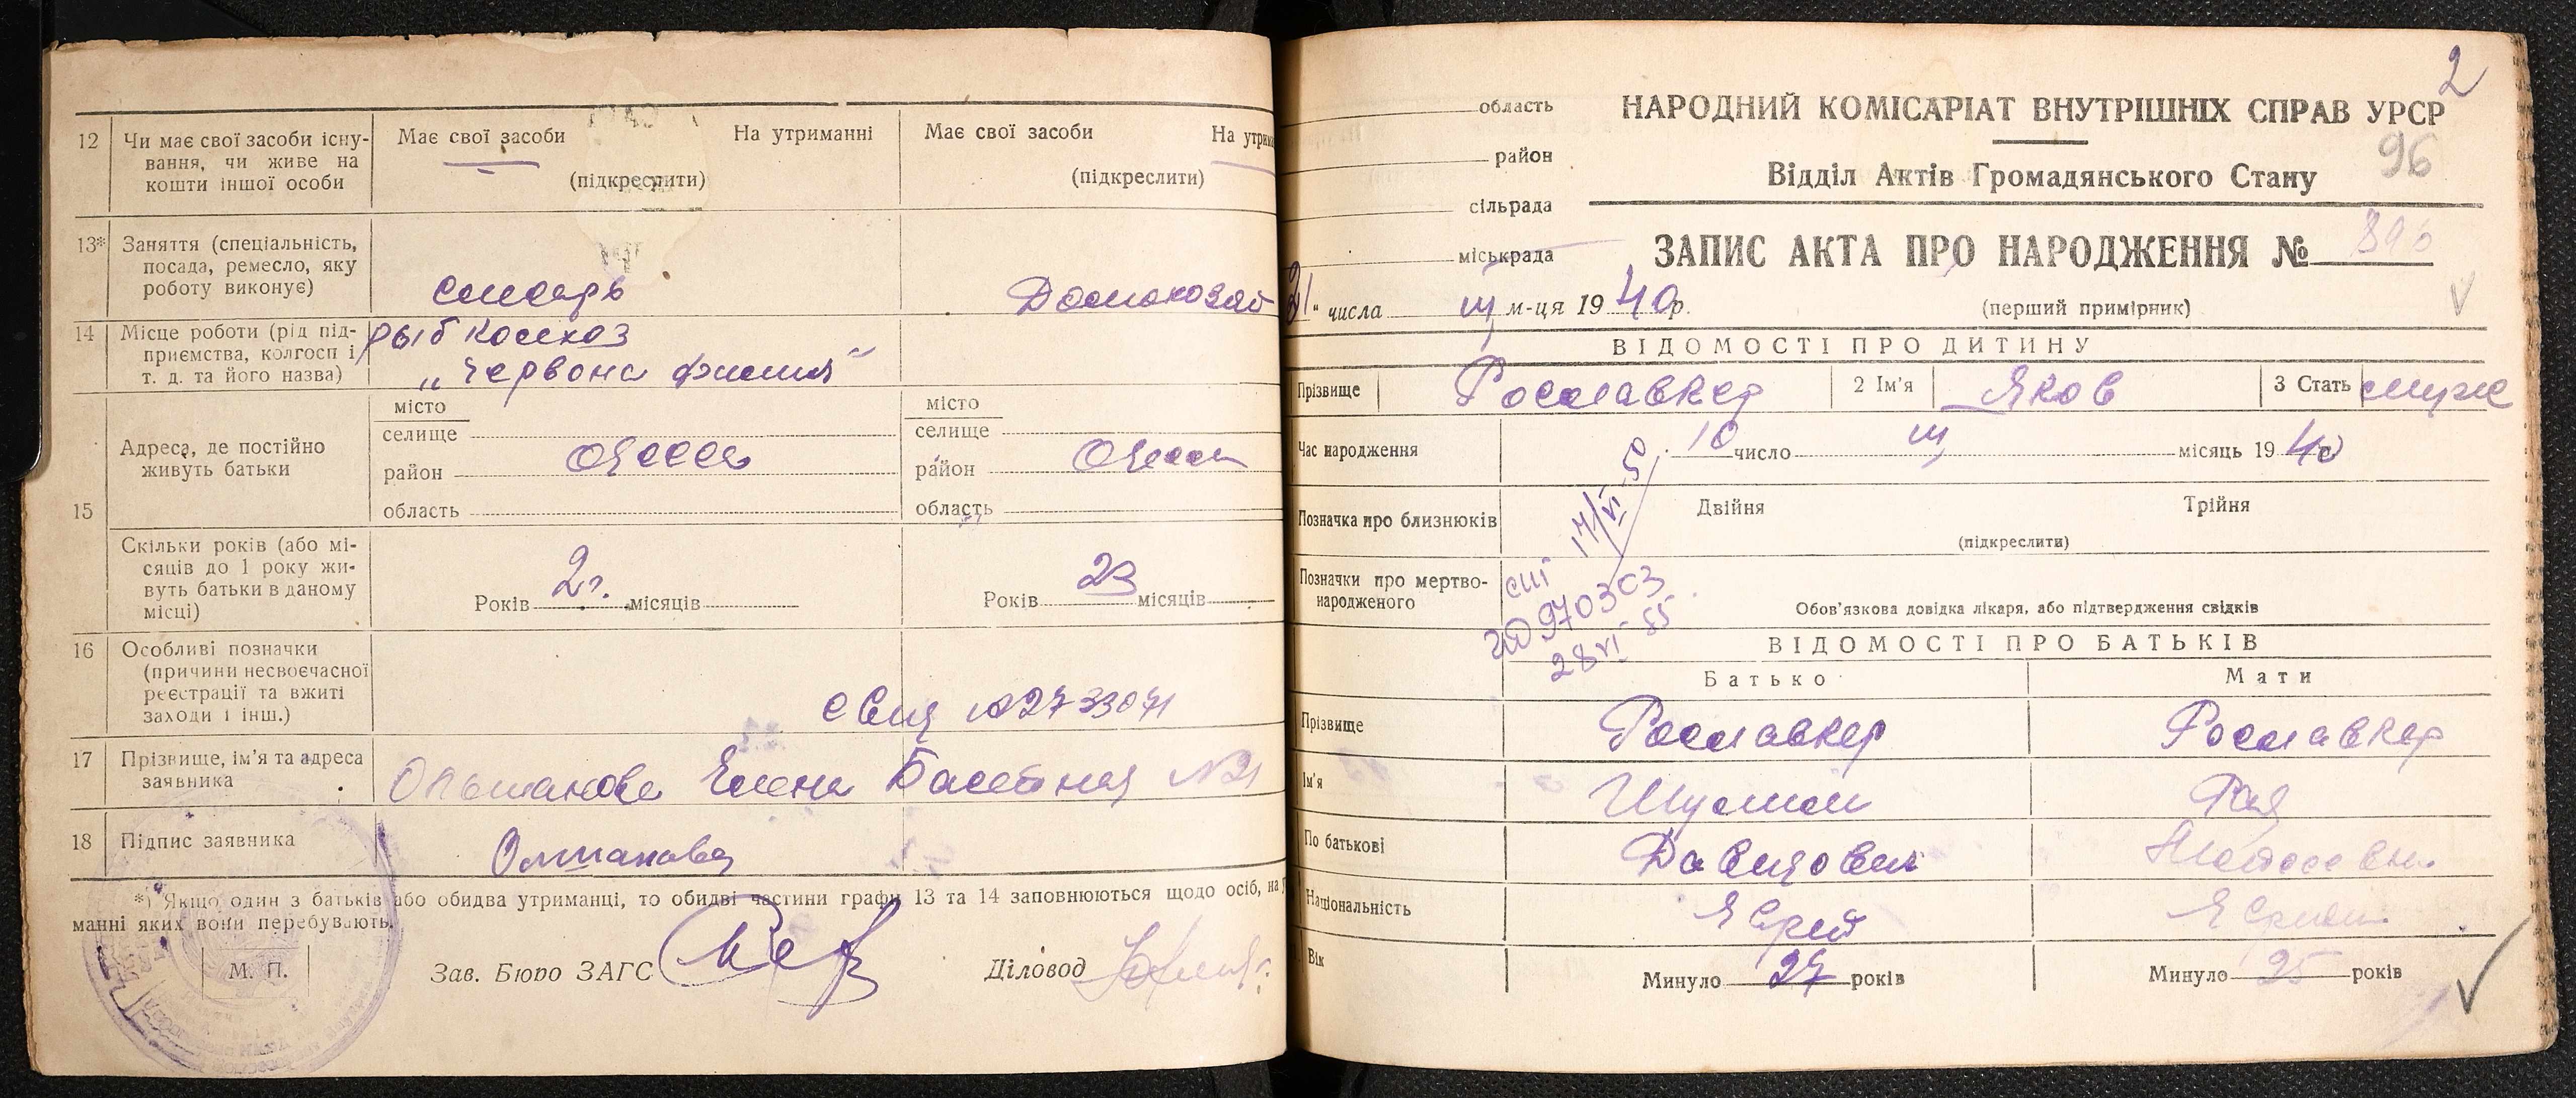 12 Чи має свої засоби існу-
вання, чи живе на
кошти іншої особи
Має свої засоби На утриманні
(підкреслити)
Має свої засоби На утрим
(підкреслити)
13* Заняття (спеціальність,
посада, ремесло, яку
роботу виконує)
Домохозяй
14 Місце роботи (рід під-
приємства, колгосп і
т. д. та його назва)
рыб колхоз
„Червона
15 Адреса, де постійно
живуть батьки
місто
селище
район Одесса
область
місто
селище
район Одесса
область
Скільки років (або мі-
сяців до 1 року жи-
вуть батьки в даному
місці)
Років 2 г. місяців
Років 23 місяців
16 Особливі позначки
(причини несвоєчасної
реєстрації та вжиті
заходи і інш.)
2733071
17 Прізвище, ім'я та адреса
заявника
Ольшанова Елена Басейная №21
18 Підпис заявника
Олшанова
*) Якщо один з батьків або обидва утриманці, то обидві частини графи 13 та 14 заповнюються щодо осіб, на у
манні яких вони перебувають.
М. П.
Зав. Бюро ЗАГС
Діловод
2
область
район
сільрада
міськрада
НАРОДНИЙ КОМІСАРІАТ ВНУТРІШНІХ СПРАВ УРСР
96
Відділ Актів Громадянського Стану
ЗАПИС АКТА ПРО НАРОДЖЕННЯ № 396
21" числа III м-ця 1940 р.
(перший примірник)
ВІДОМОСТІ ПРО ДИТИНУ
Прізвище Рославкер 2 Ім'я Яков 3 Стать муж
Час народження 10 число III місяць 1940
Позначка про близнюків Двійня Трійня
(підкреслити)
Позначки про мертво-
народженого
17/VI-5
970303
28 VI 55
Обов'язкова довідка лікаря, або підтвердження свідків
ВІДОМОСТІ ПРО БАТЬКІВ
Батько Мати
Прізвище Рославкер Рославкер
Ім'я Шулим Рая
По батькові Давидович
Національність Еврей
Вік Минуло 27 років Минуло 25 років